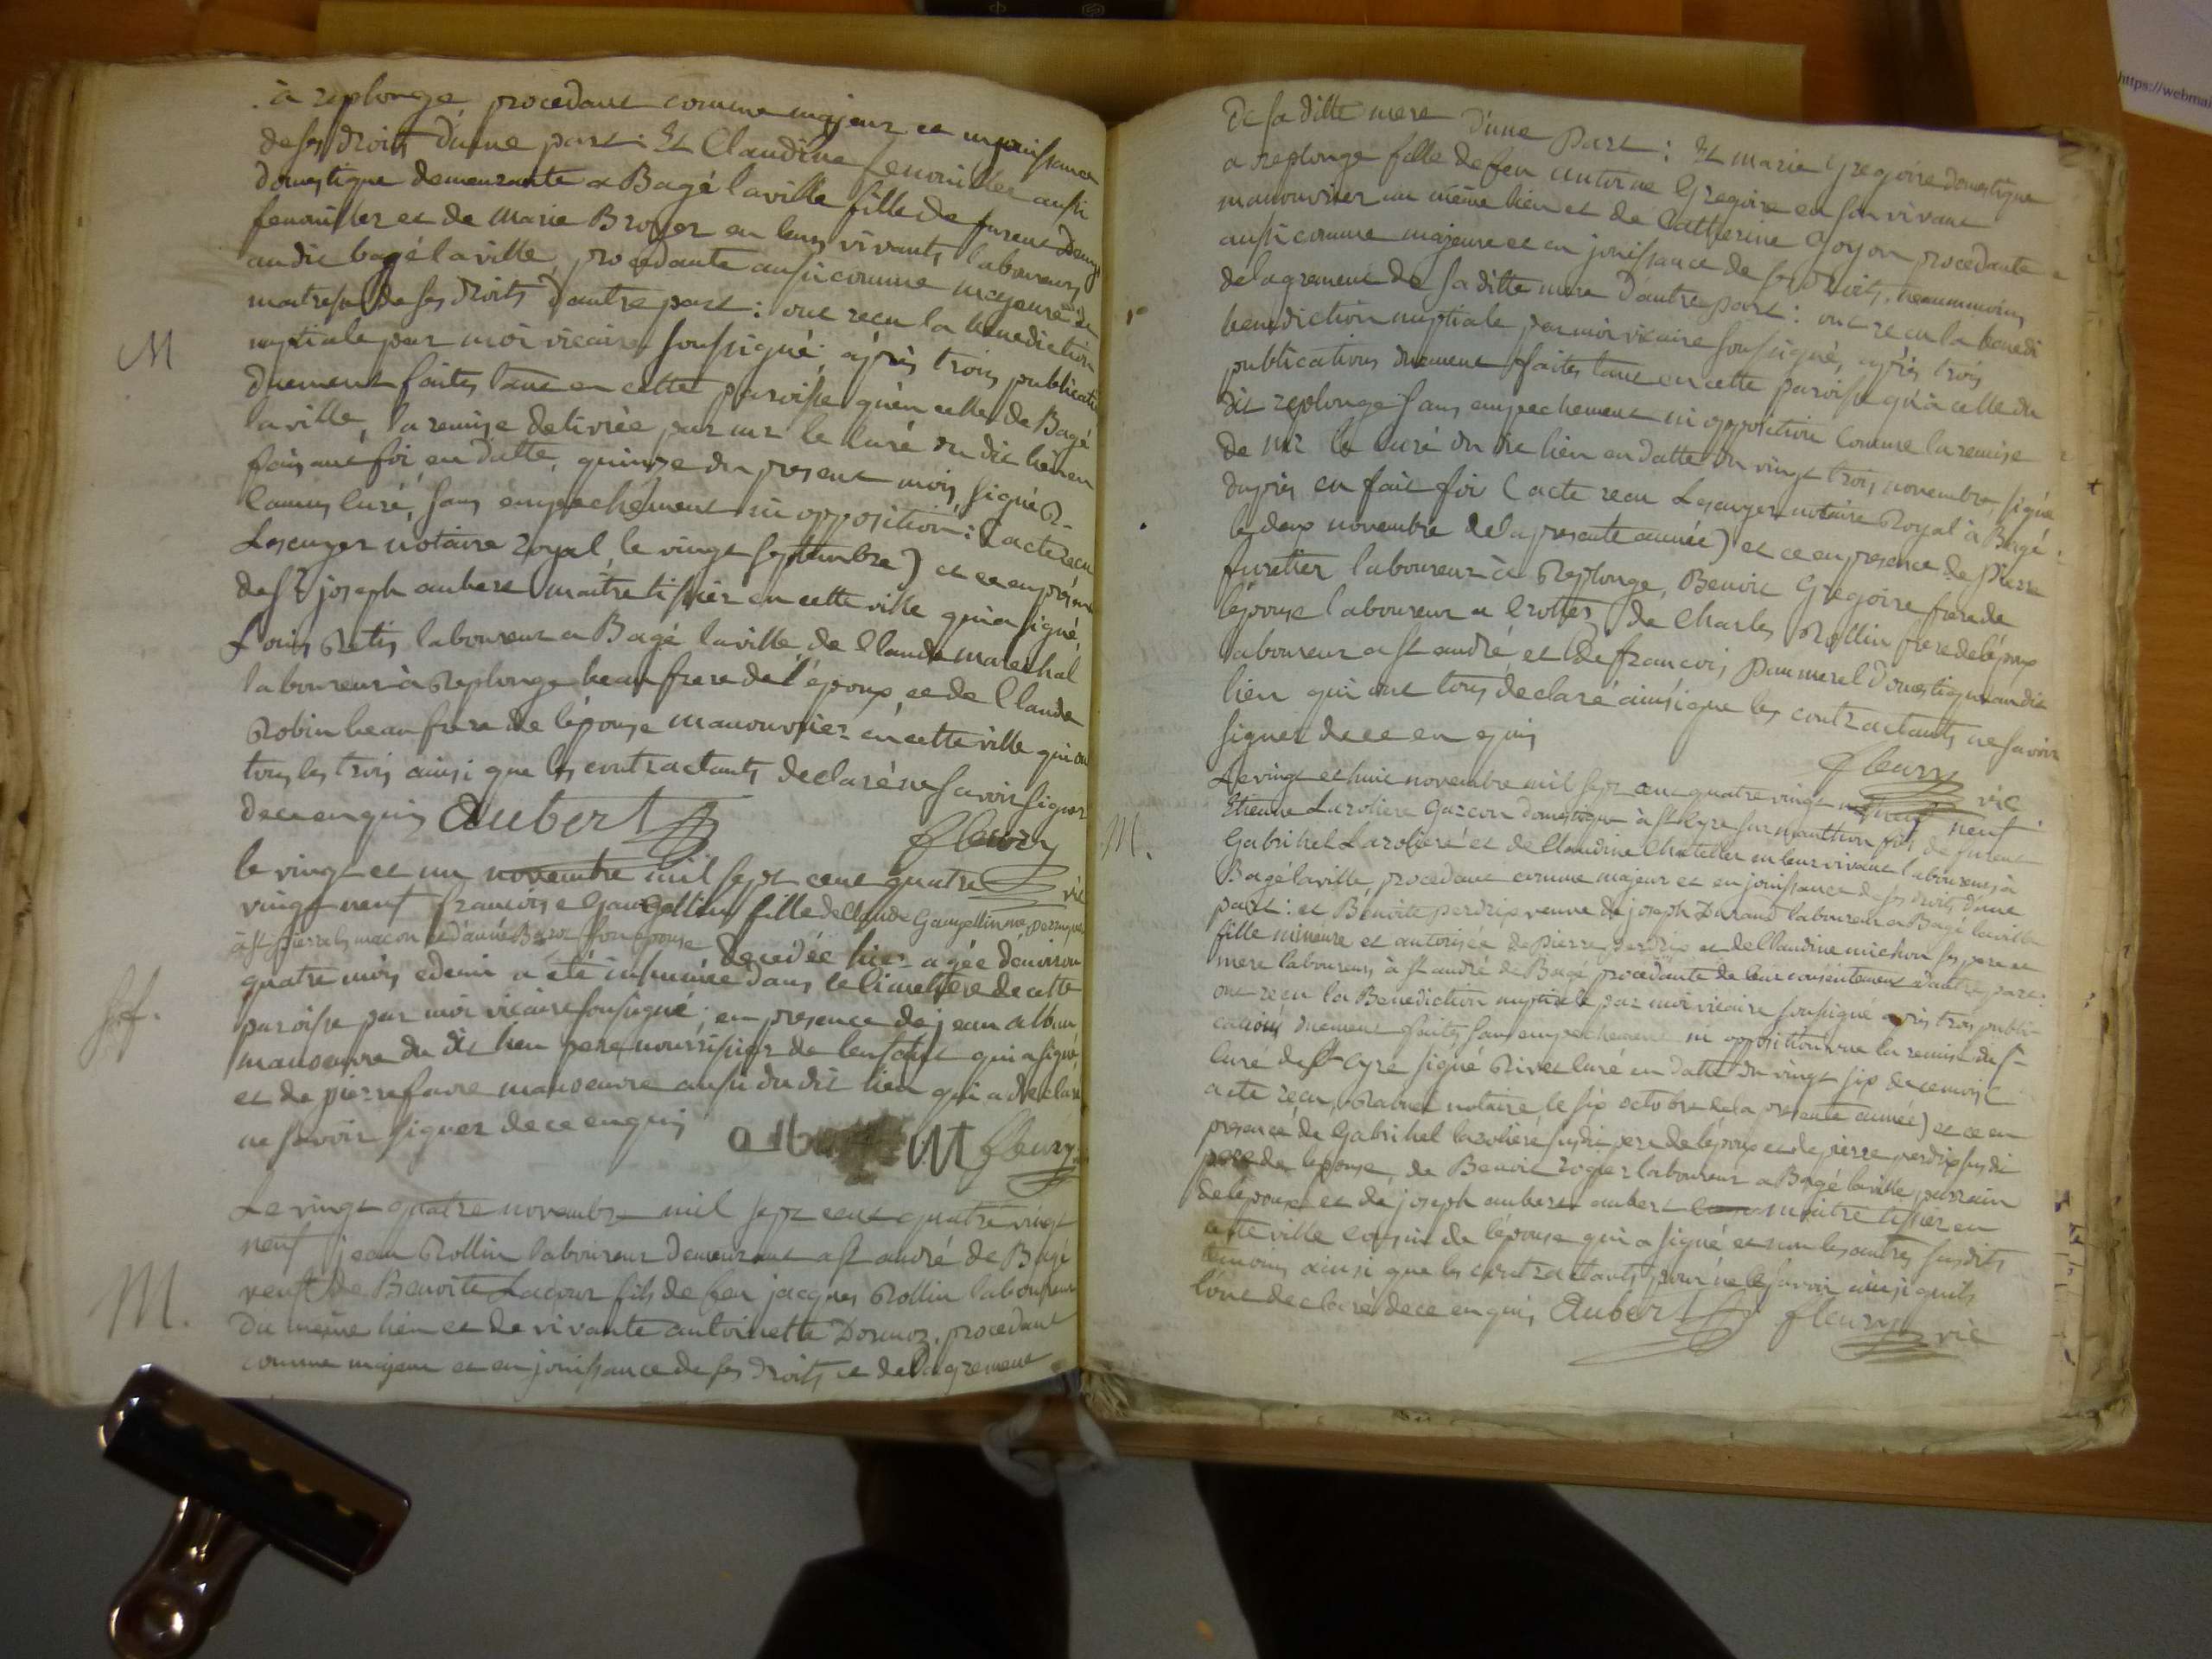 à replonge, procedant comme majeur et en jouissance
de ses droits d'une part : Et Claudine fenouiller aussi
domestique demeurante a Bagé laville fille de furent Denys
fenouiller et de Marie Broyer en leurs vivants laboureurs
audit bagé laville, procedante aussi comme majeure et
maitresse de ses droits d'autre part : ont recu la benediction
nuptiale par moi vicaire soussigné, après trois publicati
duement faites tant en cette paroisse qu'en celle de Bagé
laville, la remise delivrée par mr le Curé du dit lieu en
faisant foi en datte, quinze du present mois, signé
curé, sans empechement ni opposition : l'acte recu
Lescuyer notaire royal, le vingt septembre) et ce en présen
de Sr joseph aubert maitre tissier en cette ville qui a signé,
Louis Retis laboureur a Bagé laville, de Claude marechal
laboureur à Replonge beau frere de l'époux, et de Claude
Robin beau frere de l'épouse manouvrier en cette ville qui ont
tous les trois ainsi que les contractants declaré ne savoir signer
de ce enquis Aubert
fleury
vic
M
le vingt et un novembre mil sept cent quatre
vingt neuf francoise Gampellin fille de Claude Gampellin me perruquier
à st pierre les macon et d'année son épouse
decedée hier agée d'environ
quatre mois edemi a été inhumée dans le Cimetiere de cette
paroisse par moi vicaire soussigné, en presence de jean alban
manoeuvre du dit lieu pere nourrissier de lenfant qui a signé
et de pierre favre manoeuvre aussi du dit lieu qui a declaré
ne savoir signer de ce enquis
fleury
M.
Le vingt quatre novembre mil sept cent quatre vingt
neuf jean Rollin laboureur demeurant a st andré de Bagé
veuf de Benoite Lacour fils de feu jacques Rollin laboureur
du même lieu et de vivante antoinette Dormoz, procedant
comme majeur et en jouissance de ses droits et de l'agrement
de sa ditte mere d'une Part : Et marie Gregoire domestique
a replonge fille de feu antoine Gregoire en son vivant
manouvrier au même lieu et de Catherine Goyon procedante
aussi comme majeure et en jouissance de ses Droits, neanmoins
de lagrement de sa ditte mere d'autre part : ont recu la benedi
benediction nuptiale par moi vicaire soussigné, après trois
publications duement faites tant en cette paroisse qu'à celle du
dit replonge sans empechement ni opposition comme la remise
de mr le curé du dit lieu en datte du vingt trois novembre, signé
en fait foi (acte recu Lescuyer notaire Royal à Bagé
le deux novembre de la presente année) et ce en presence de pierre
furetier laboureur à Replonge, Benoit Gregoire frere de
l'épouse laboureur a Crottet, de Charles Rollin frere de lépoux
laboureur a st andré et de francois paumerel domestique audit
lieu qui ont tous declaré ainsi que les contractants ne savoir
signer de ce en quis
fleury
vic
M.
Le vingt et huit novembre mil sept cent quatre vingt neuf
Etienne Lazoliere Garcon domestique à st Cyre sur manthon fils de furent
Gabrihel Lazoliere et de Claudine Chatellet en leur vivant laboureurs à
Bagé laville, procedant comme majeur et en jouissance de ses droits d'une
part : et Benoite perdrix veuve de joseph Durand laboureur a Bagé laville
fille mineure et autorisée de pierre perdrix et de Claudine michon ses pere et
mere laboureurs à st andré de Bagé procedante de leur consentement d'autre part :
ont recu la Benediction nuptiale par moi vicaire soussigné après trois publi-
cations duement faites sans empechement ni opposition vue la remise du Sr
Curé de St Cyre signé Rivet curé en datte du vingt six de ce mois (
acte recu, notaire le six octobre de la presente année) et ce en
presence de Gabrihel lazoliere susdit pere de lépoux et de pierre perdrix susdit
pere de lépouse, de Benoit rogier laboureur a Bagé laville, parrain
de lépouse et de joseph aubert aubert maitre tissier en
cette ville cousin de lépouse qui a signé et non les autres susdits
temoins ainsi que les contractants pour ne le savoir ainsi quils
l'ont declaré de ce enquis Aubert fleury vic
https://webmai